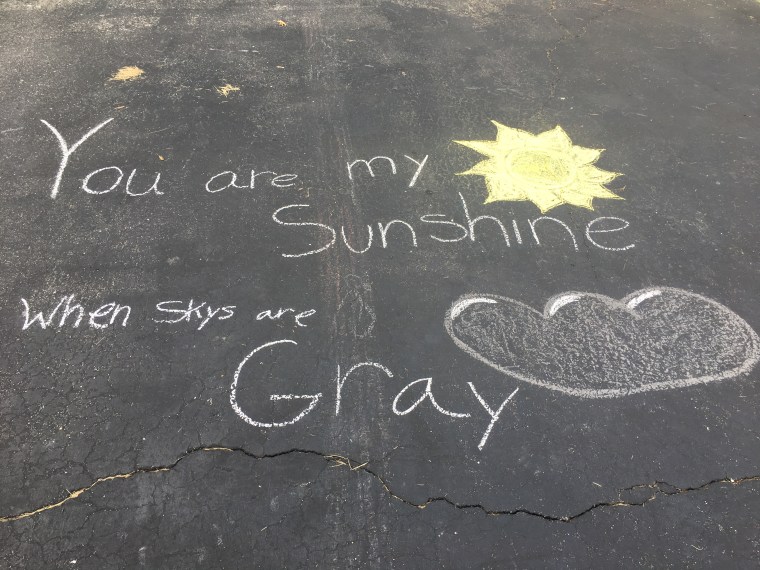 You are my
Sunshine
When Skys are
Gray